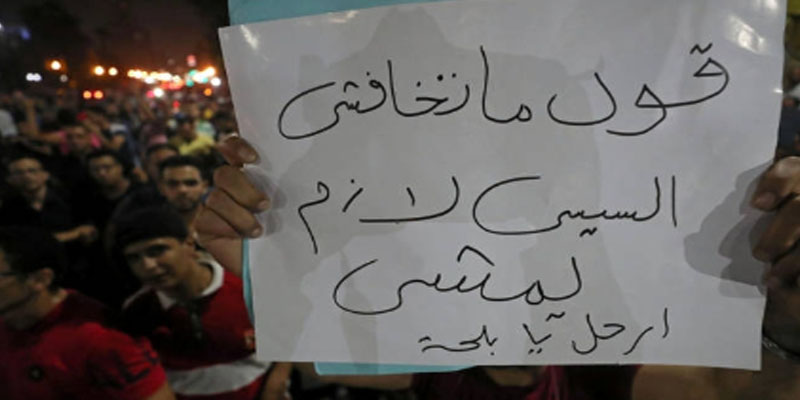 قول ماتخافشي
السيسى لازم
يمشى
ارحل يا بلحة